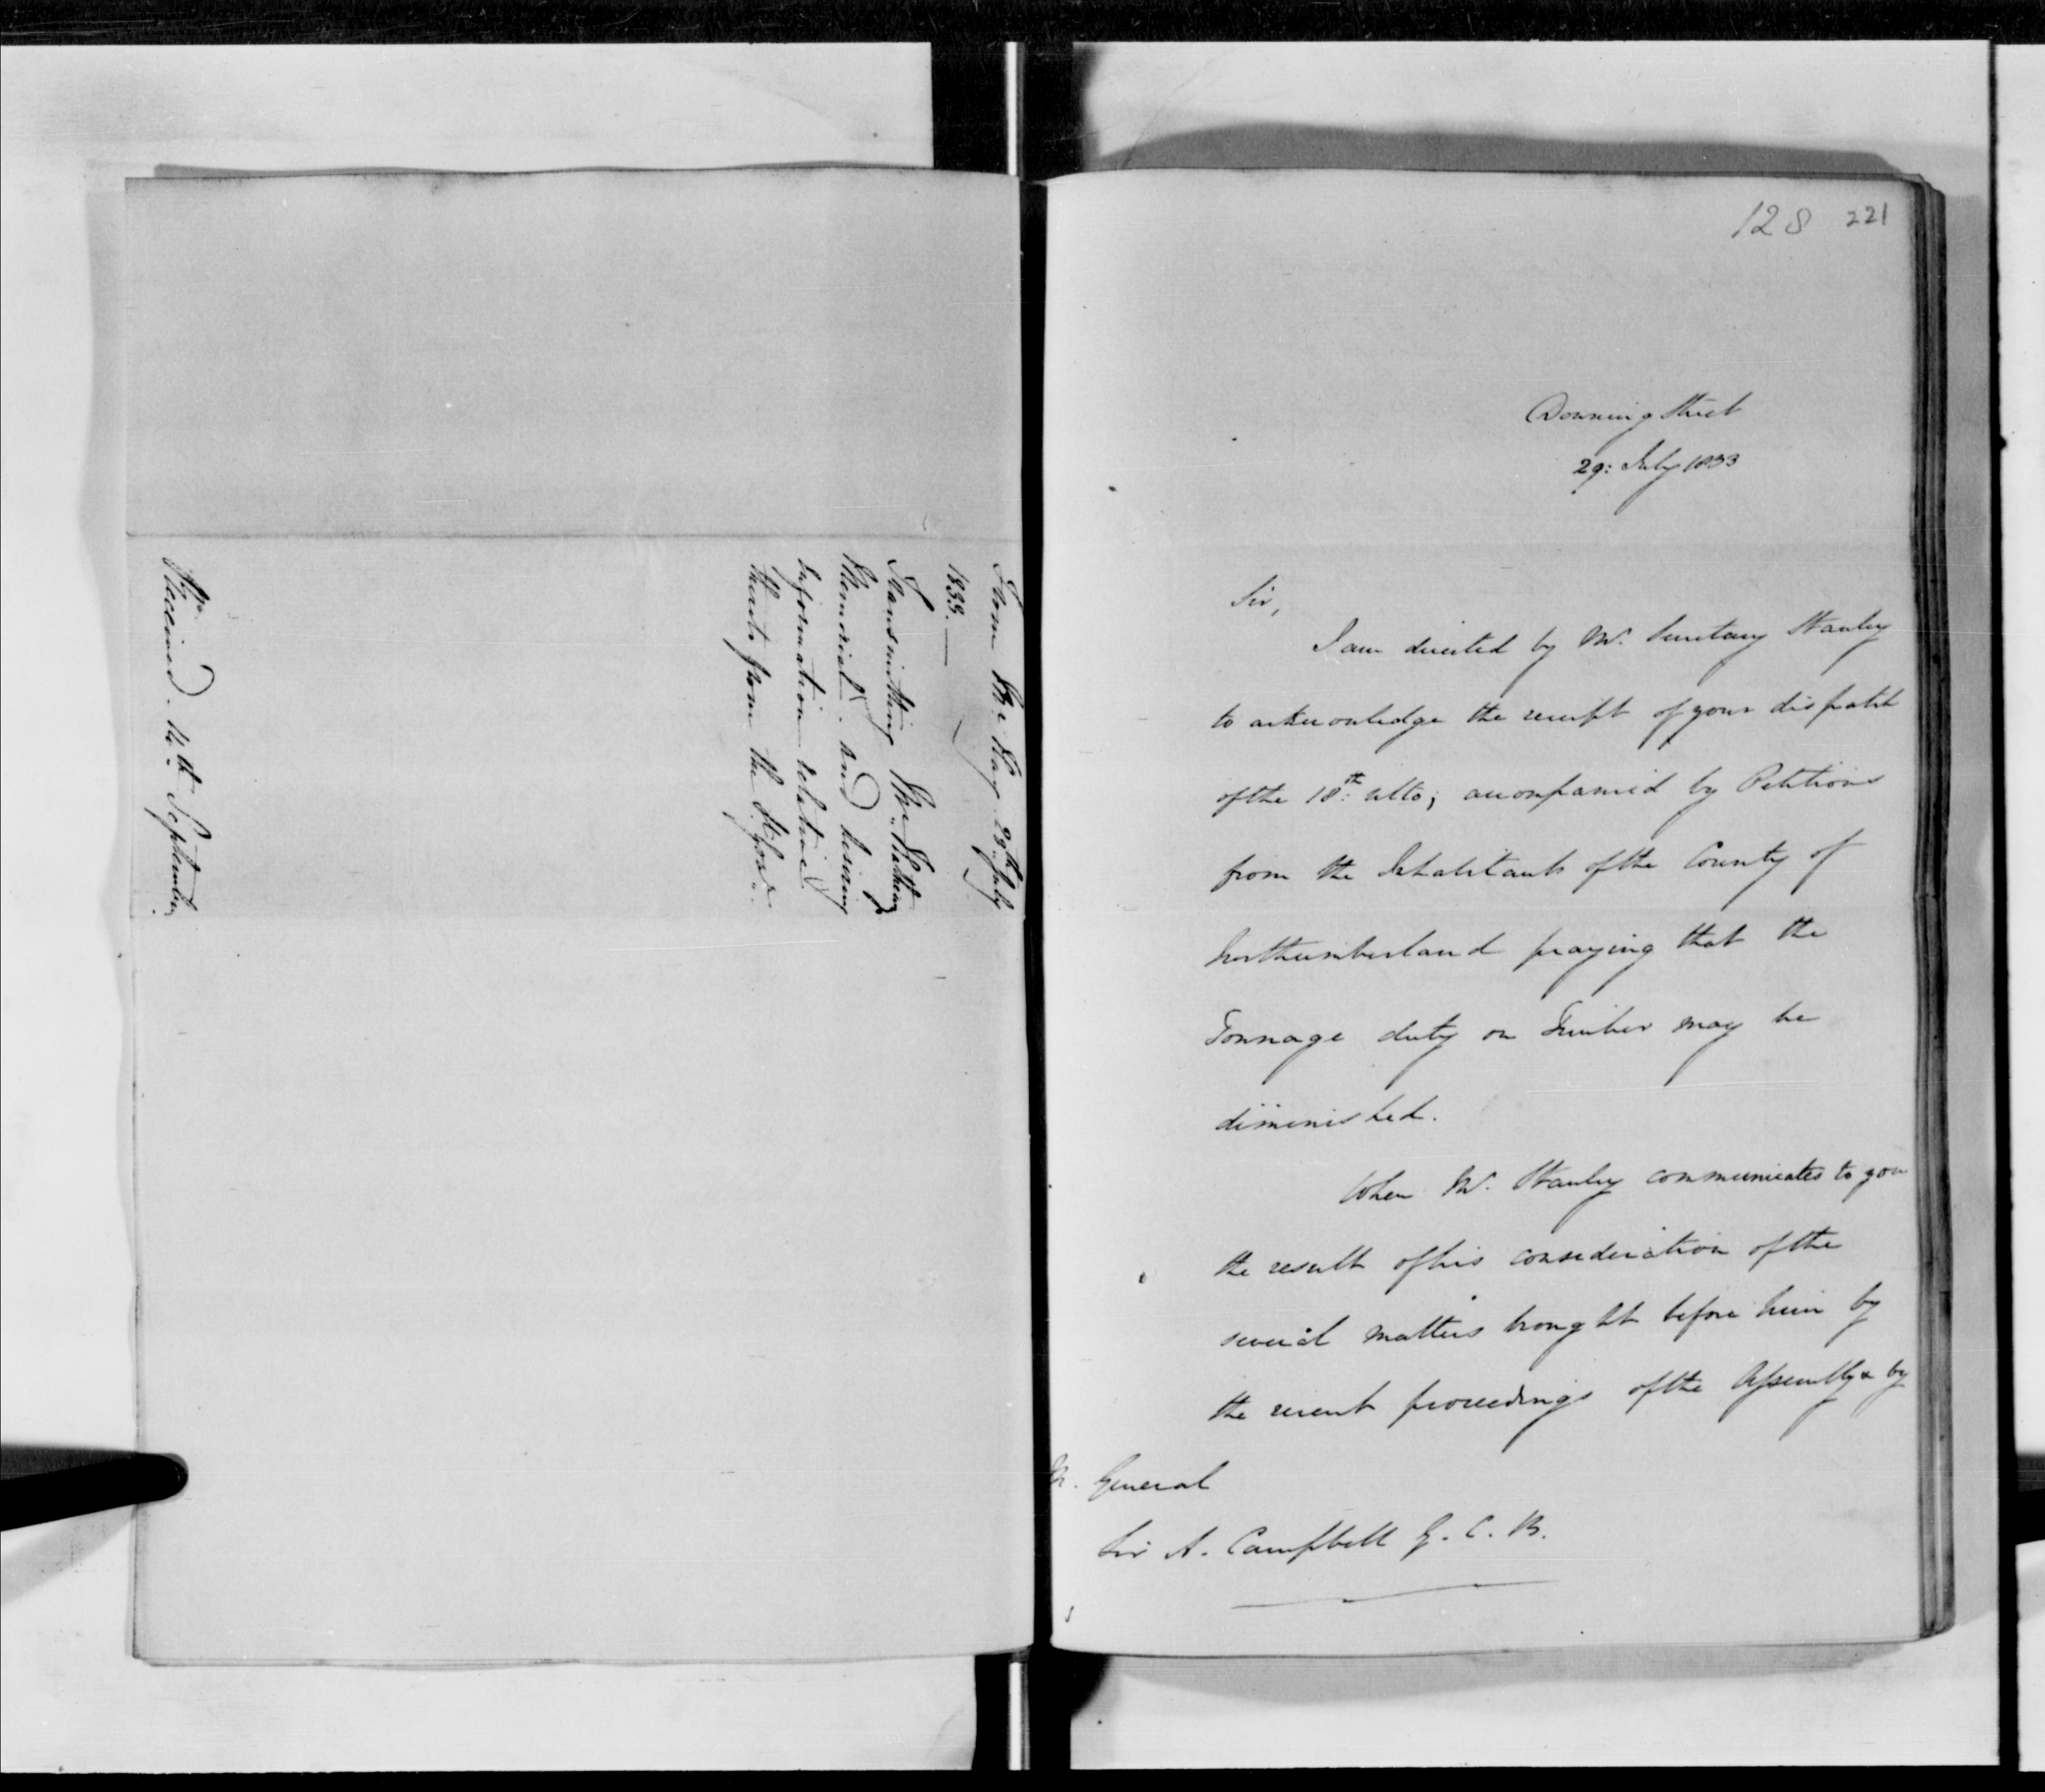 From Mr. Hay 29th July
1833.—
Transmitting
Memorial. and desiring
information relative
thereto from the
Received. 14th September
128 221
Downing Street
29: July 1833
Sir,
I am directed by Mr. Secretary Stanley
to acknowledge the receipt of your dispatch
of the 18th: ulto; accompanied by Petitions
from the Inhabitants of the County of
Northumberland praying that the
Tonnage duty on Timber may be
diminished.
When Mr. Stanley communicates to you
the result of his consideration of the
several matters brought before him by
the recent proceedings of the Assembly & by
M. General
Sir A. Campbell G. C. B.